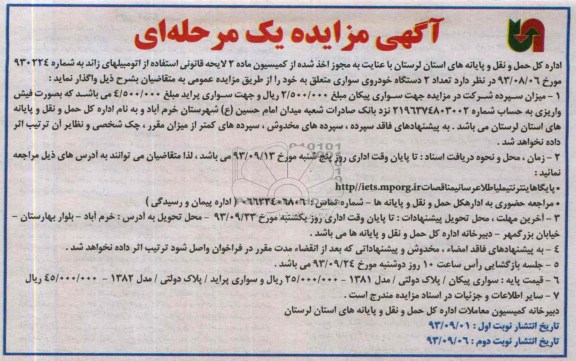 آگهی مزایده یک مرحله‌ای
اداره کل حمل و نقل و پایانه های استان لرستان با عنایت به مجوز اخذ شده از کمیسیون ماده ۲ لایحه قانونی استفاده از اتومبیلهای زاند به شماره ۹۳۰۲۲۴
مورخ ۹۳/۰۸/۰۶ در نظر دارد تعداد ۲ دستگاه خودروی سواری متعلق به خود را از طریق مزایده عمومی به متقاضیان بشرح ذیل واگذار نماید :
۱ - میزان سپرده شرکت در مزایده جهت سواری پیکان مبلغ ۲/۵۰۰/۰۰۰ ریال و جهت سواری پراید مبلغ ۴/۵۰۰/۰۰۰ می باشد که بصورت فیش
واریزی به حساب شماره ۲۱۹۶۳۷۴۸۰۳۰۰۲ نزد بانک صادرات شعبه میدان امام حسین (ع) شهرستان خرم آباد و به نام اداره کل حمل و نقل و پایانه
های استان لرستان می باشد . به پیشنهادهای فاقد سپرده ، سپرده های مخدوش ، سپرده های کمتر از میزان مقرر ، چک شخصی و نظایر آن ترتیب اثر
داده نخواهد شد .
۲ - زمان ، محل و نحوه دریافت اسناد : تا پایان وقت اداری روز پنج شنبه مورخ ۹۳/۰۹/۱۳ می باشد ، لذا متقاضیان می توانند به آدرس های ذیل مراجعه
نمائید :
• پایگاهاینترنتیملیاطلاعرسانیمناقصات http//iets.mporg.ir
• مراجعه حضوری به ادارهکل حمل و نقل و پایانه ها – شماره تماس : ۰۶۶۳۳۴۰۶۸۰۶ ( اداره پیمان و رسیدگی )
۳ - آخرین مهلت ، محل تحویل پیشنهادات : تا پایان وقت اداری روز یکشنبه مورخ ۹۳/۰۹/۲۳ – محل تحویل به آدرس : خرم آباد – بلوار بهارستان –
خیابان بزرگمهر – دبیرخانه اداره کل حمل و نقل و پایانه ها می باشد .
۴ - به پیشنهادهای فاقد امضاء ، مخدوش و پیشنهاداتی که بعد از انقضاء مدت مقرر در فراخوان واصل شود ترتیب اثر داده نخواهد شد .
۵ - جلسه بازگشایی رأس ساعت ۱۰ روز دوشنبه مورخ ۹۳/۰۹/۲۴ می باشد .
۶ - قیمت پایه : سواری پیکان / پلاک دولتی / مدل ۱۳۸۱ – ۲۵/۰۰۰/۰۰۰ ریال و سواری پراید / پلاک دولتی / مدل ۱۳۸۲ – ۴۵/۰۰۰/۰۰۰ ریال
۷ - سایر اطلاعات و جزئیات در اسناد مزایده مندرج است .
دبیرخانه کمیسیون معاملات اداره کل حمل و نقل و پایانه های استان لرستان
تاریخ انتشار نوبت اول : ۹۳/۰۹/۰۱
تاریخ انتشار نوبت دوم : ۹۳/۰۹/۰۶